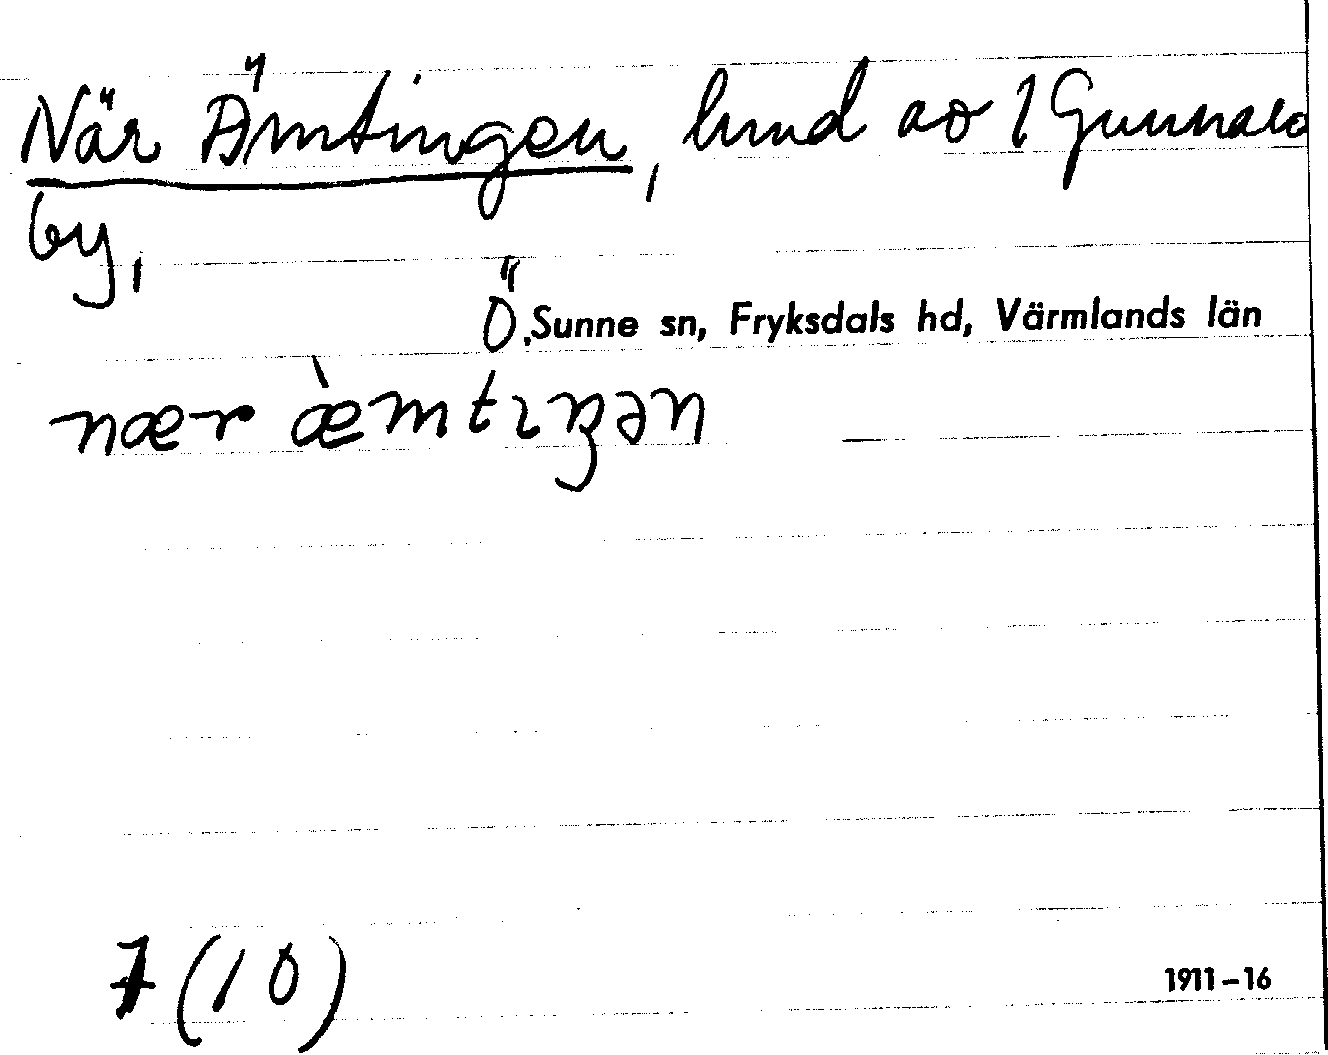 När Ämtingen, lund av 1 Gunnars
by,
Ö. Sunne sn, Fryksdals hd, Värmlands län
nær æ̀mtıŋən
7 (10)
1911–16